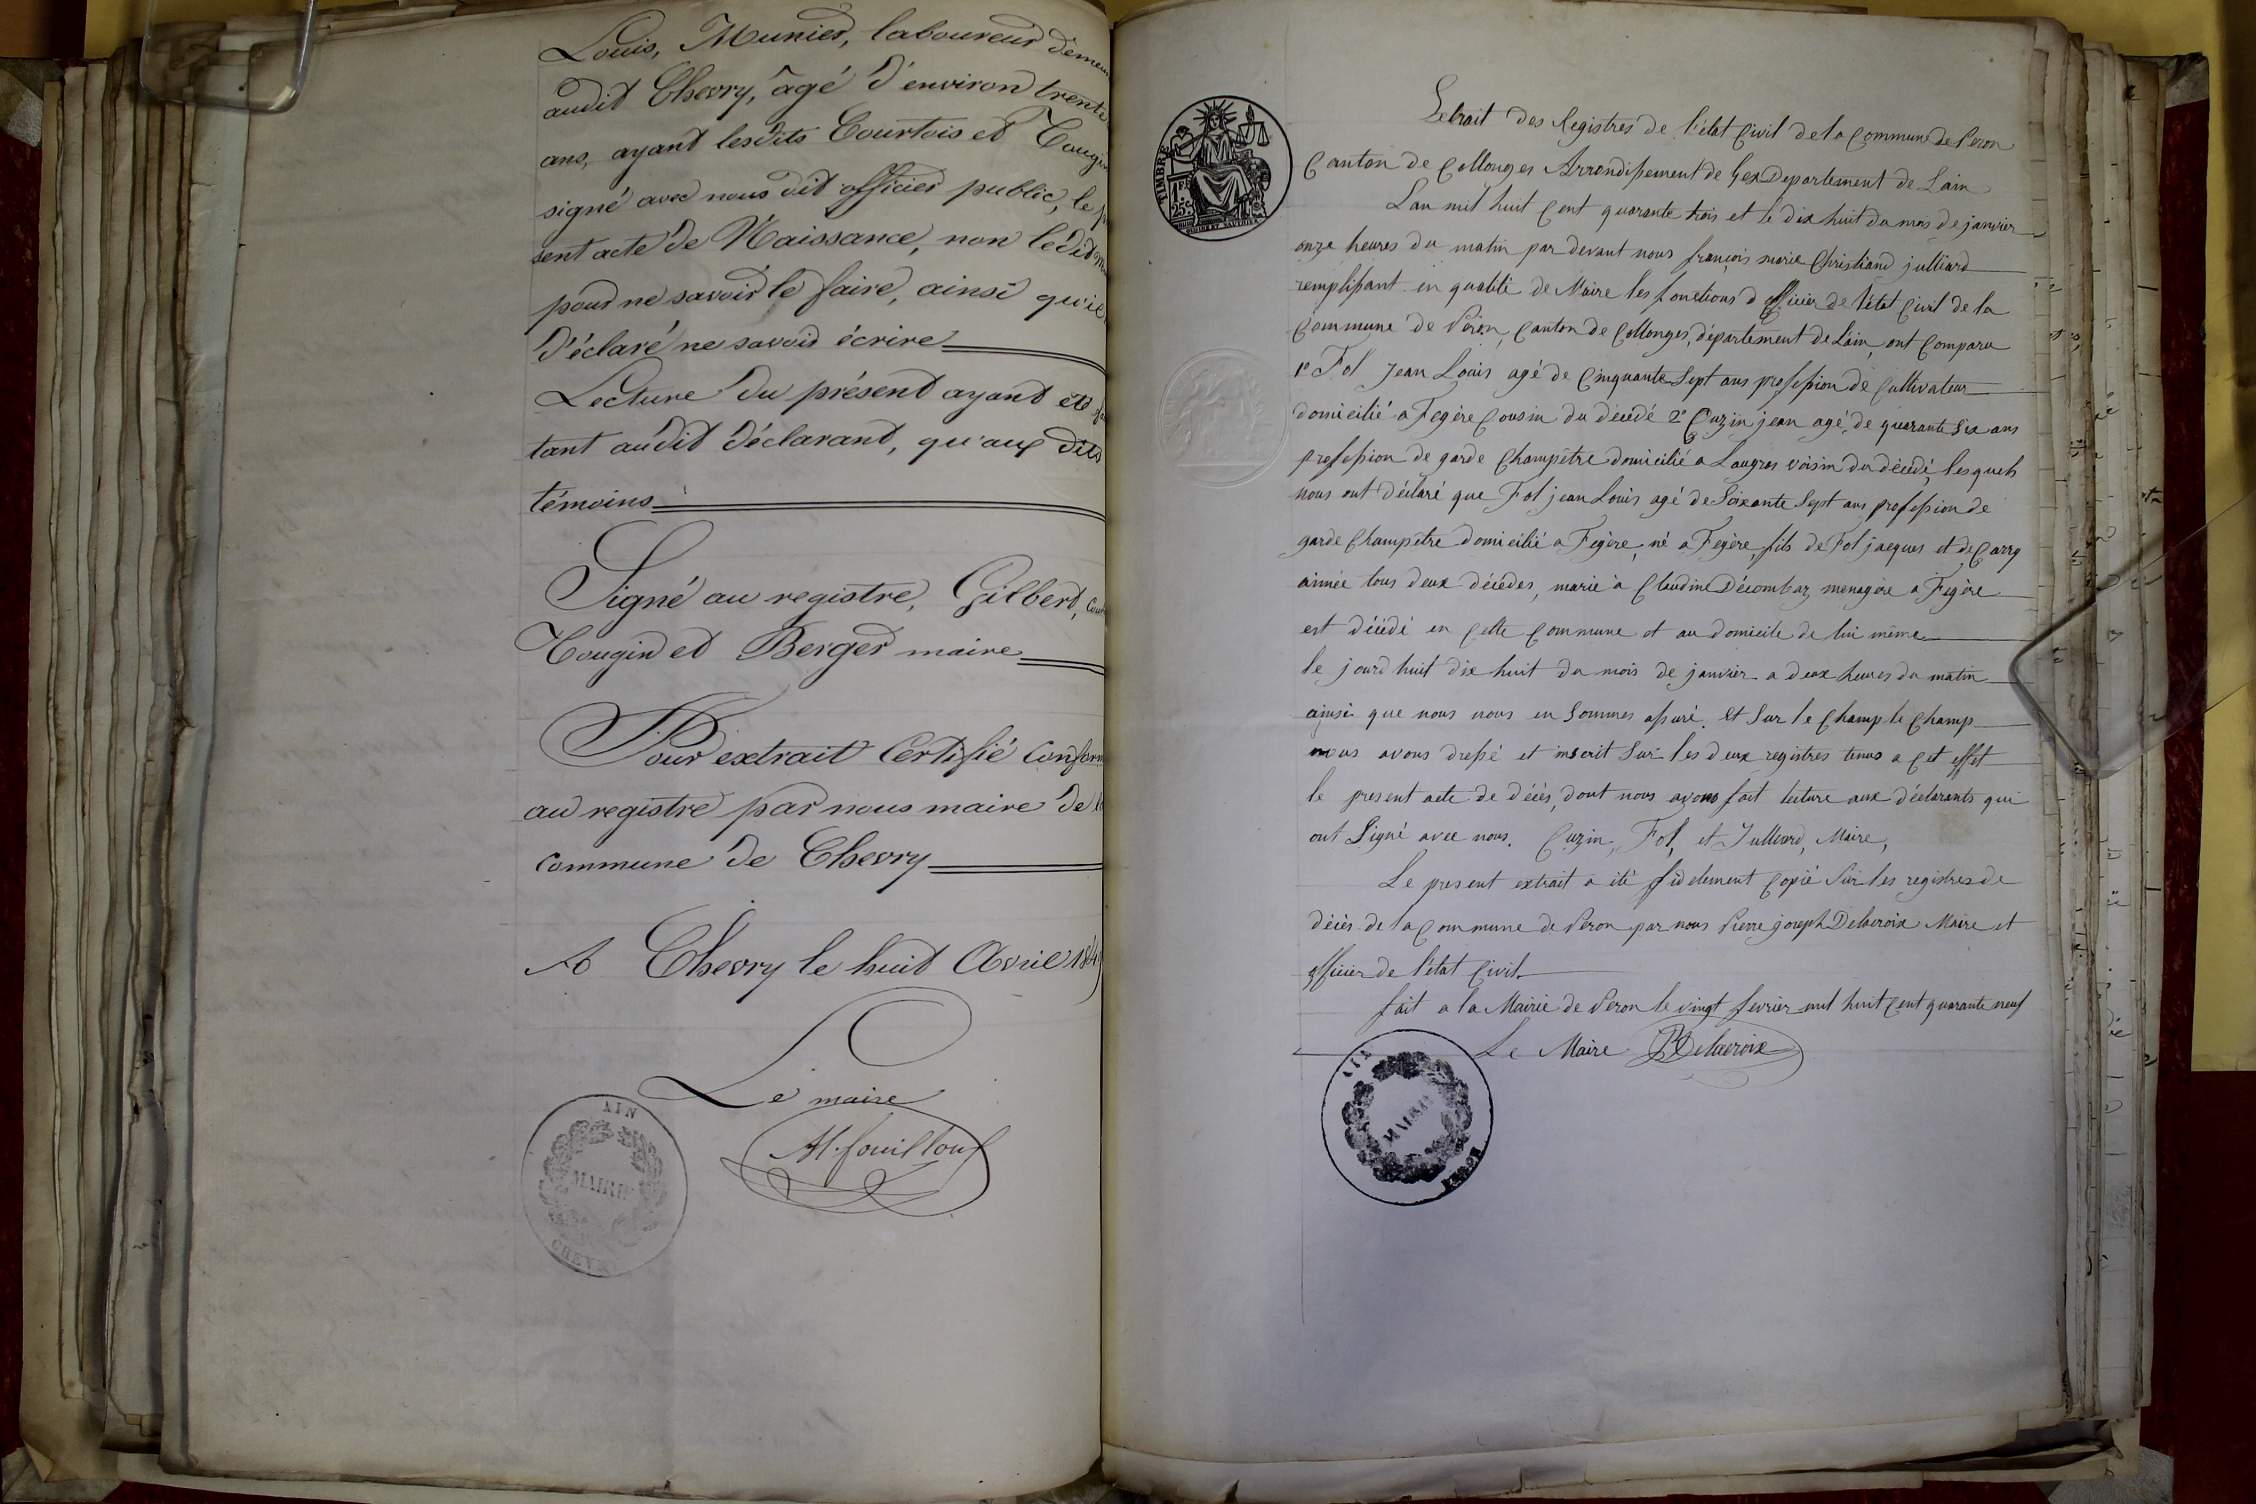 Louis, Munier, laboureur demeu
audit Chevry, âgé d'environ trente
ans, ayant lesdits Courtois et Tougin
signé avec nous dit officier public, le p
sent acte de Naissance, non ledit
pour ne savoir le faire, ainsi qu'il
déclaré ne savoir écrire
Lecture du présent ayant été
tant audit déclarant, qu'aux dits
témoins
Signé au registre, Gilbert,
Tougin et Berger maire
Pour extrait Certifié Conform
au registre par nous maire de
commune de Chevry
A Chevry le huit Avril
Le maire
AIN
MAIRIE
TIMBRE
1F
25c
Extrait des Registres de l'état Civil de la Commune de Peron
Canton de Collonges Arrondissement de Gex Departement de Lain
Lan mil huit Cent quarante trois et le dix huit du mois de janvier
onze heures du matin par devant nous françois marie Christiand julliard
remplissant en qualité de Maire les fonctions d officier de l'état Civil de la
Commune de Péron, Canton de Collonges, département de Láin, ont Comparu
1º Fol Jean Louis agé de Cinquante Sept ans profession de Cultivateur
domicilié a Fegère Cousin du décédé 2º Cuzin jean agé de quarante Six ans
profession de garde Champêtre domicilié a Laugras voisin du décédé, lesquels
nous ont déclaré que Fol jean Louis agé de Soixante Sept ans profession de
garde Champêtre domicilié a Fegère, né a Fegère, fils de Fol jacques et de Carry
aimée tous deux décédes, marié à Claudine Décombaz menagère a Fegère
est décédé en Cette Commune et au domicile de lui même
le jourd huit dix huit du mois de janvier a deux heures du matin
ainsi que nous nous en Sommes assuré. et Sur le Champ le Champ
nous avons dressé et inscrit Sur les deux registres tenus a Cet effet
le present acte de décès, dont nous avons fait lecture aux déclarants qui
ont Signé avec nous. Cuzin, Fol, et Julliard, Maire,
Le present extrait a été fidelement Copié Sur les registres de
décès de la Commune de Peron par nous Pierre joseph Delacroix Maire et
officier de l'état Civil
fait a la Mairie de Peron le vingt fevrier mil huit Cent quarante neuf
Le Maire Delacroix
AIN
MAIRIE